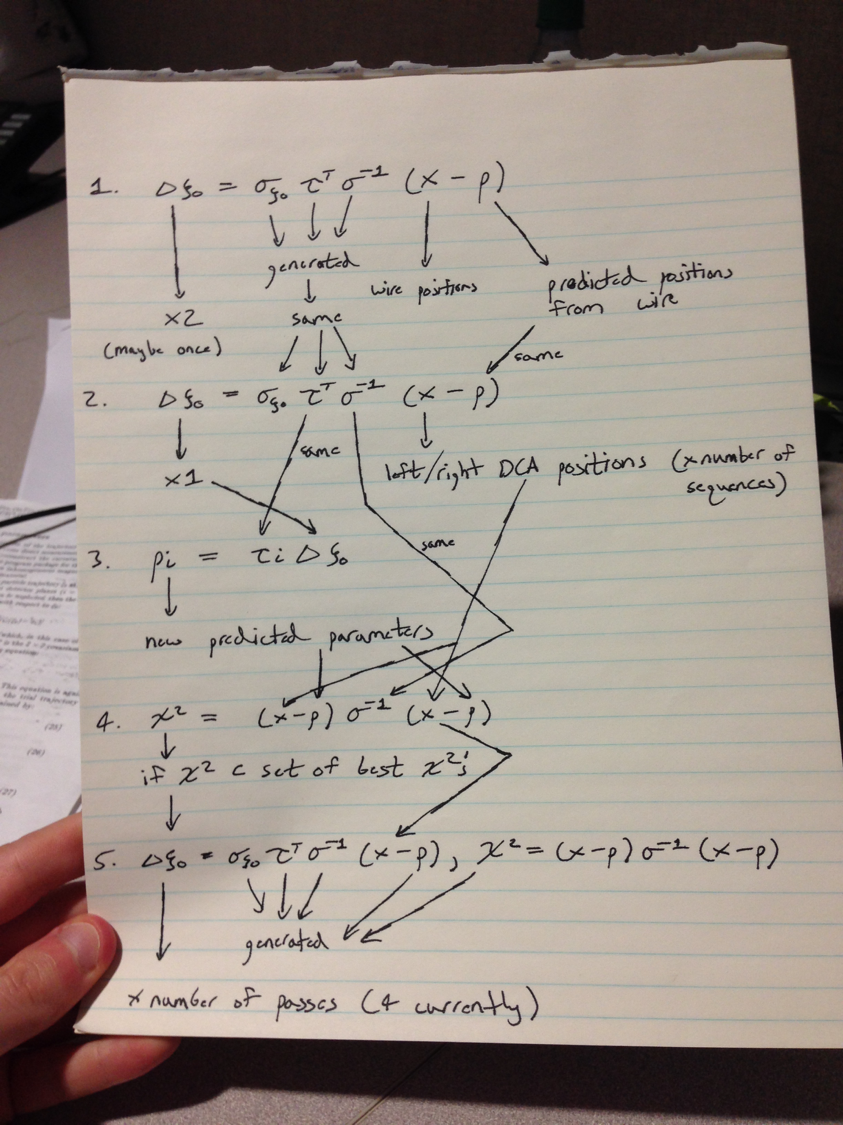 1. Δξ₀ = σξ₀ τᵀ σ⁻¹ (x - p)
generated
wire positions
predicted positions
from wire
x2
(maybe once)
same
same
2. Δξ₀ = σξ₀ τᵀ σ⁻¹ (x - p)
same
left/right DCA positions (x number of
sequences)
x1
same
3. pi = τi Δξ₀
new predicted parameters
4. χ² = (x-p) σ⁻¹ (x-p)
if χ² ⊂ set of best χ²'s
5. Δξ₀ = σξ₀ τᵀ σ⁻¹ (x-p), χ² = (x-p) σ⁻¹ (x-p)
generated
x number of passes (4 currently)
This equation is again
the trial trajectory
(25)
(26)
(27)